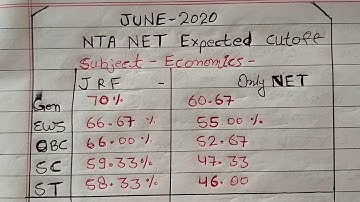 JUNE-2020
NTA NET Expected Cutoff
Subject - Economics -
JRF - Only NET
Gen 70% 60.67
EWS 66.67 % 55.00 %
OBC 66.00 % 52.67
SC 59.33% 47.33
ST 58.33% 46.00